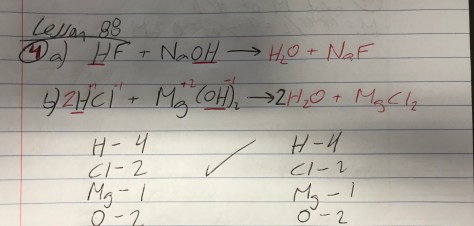 Lesson 88
4 a) HF + NaOH → H₂O + NaF
b) 2H⁺¹Cl⁻¹ + Mg⁺²(OH)⁻¹₂ → 2H₂O + MgCl₂
H - 4 H - 4
Cl - 2 ✓ Cl - 2
Mg - 1 Mg - 1
O - 2 O - 2